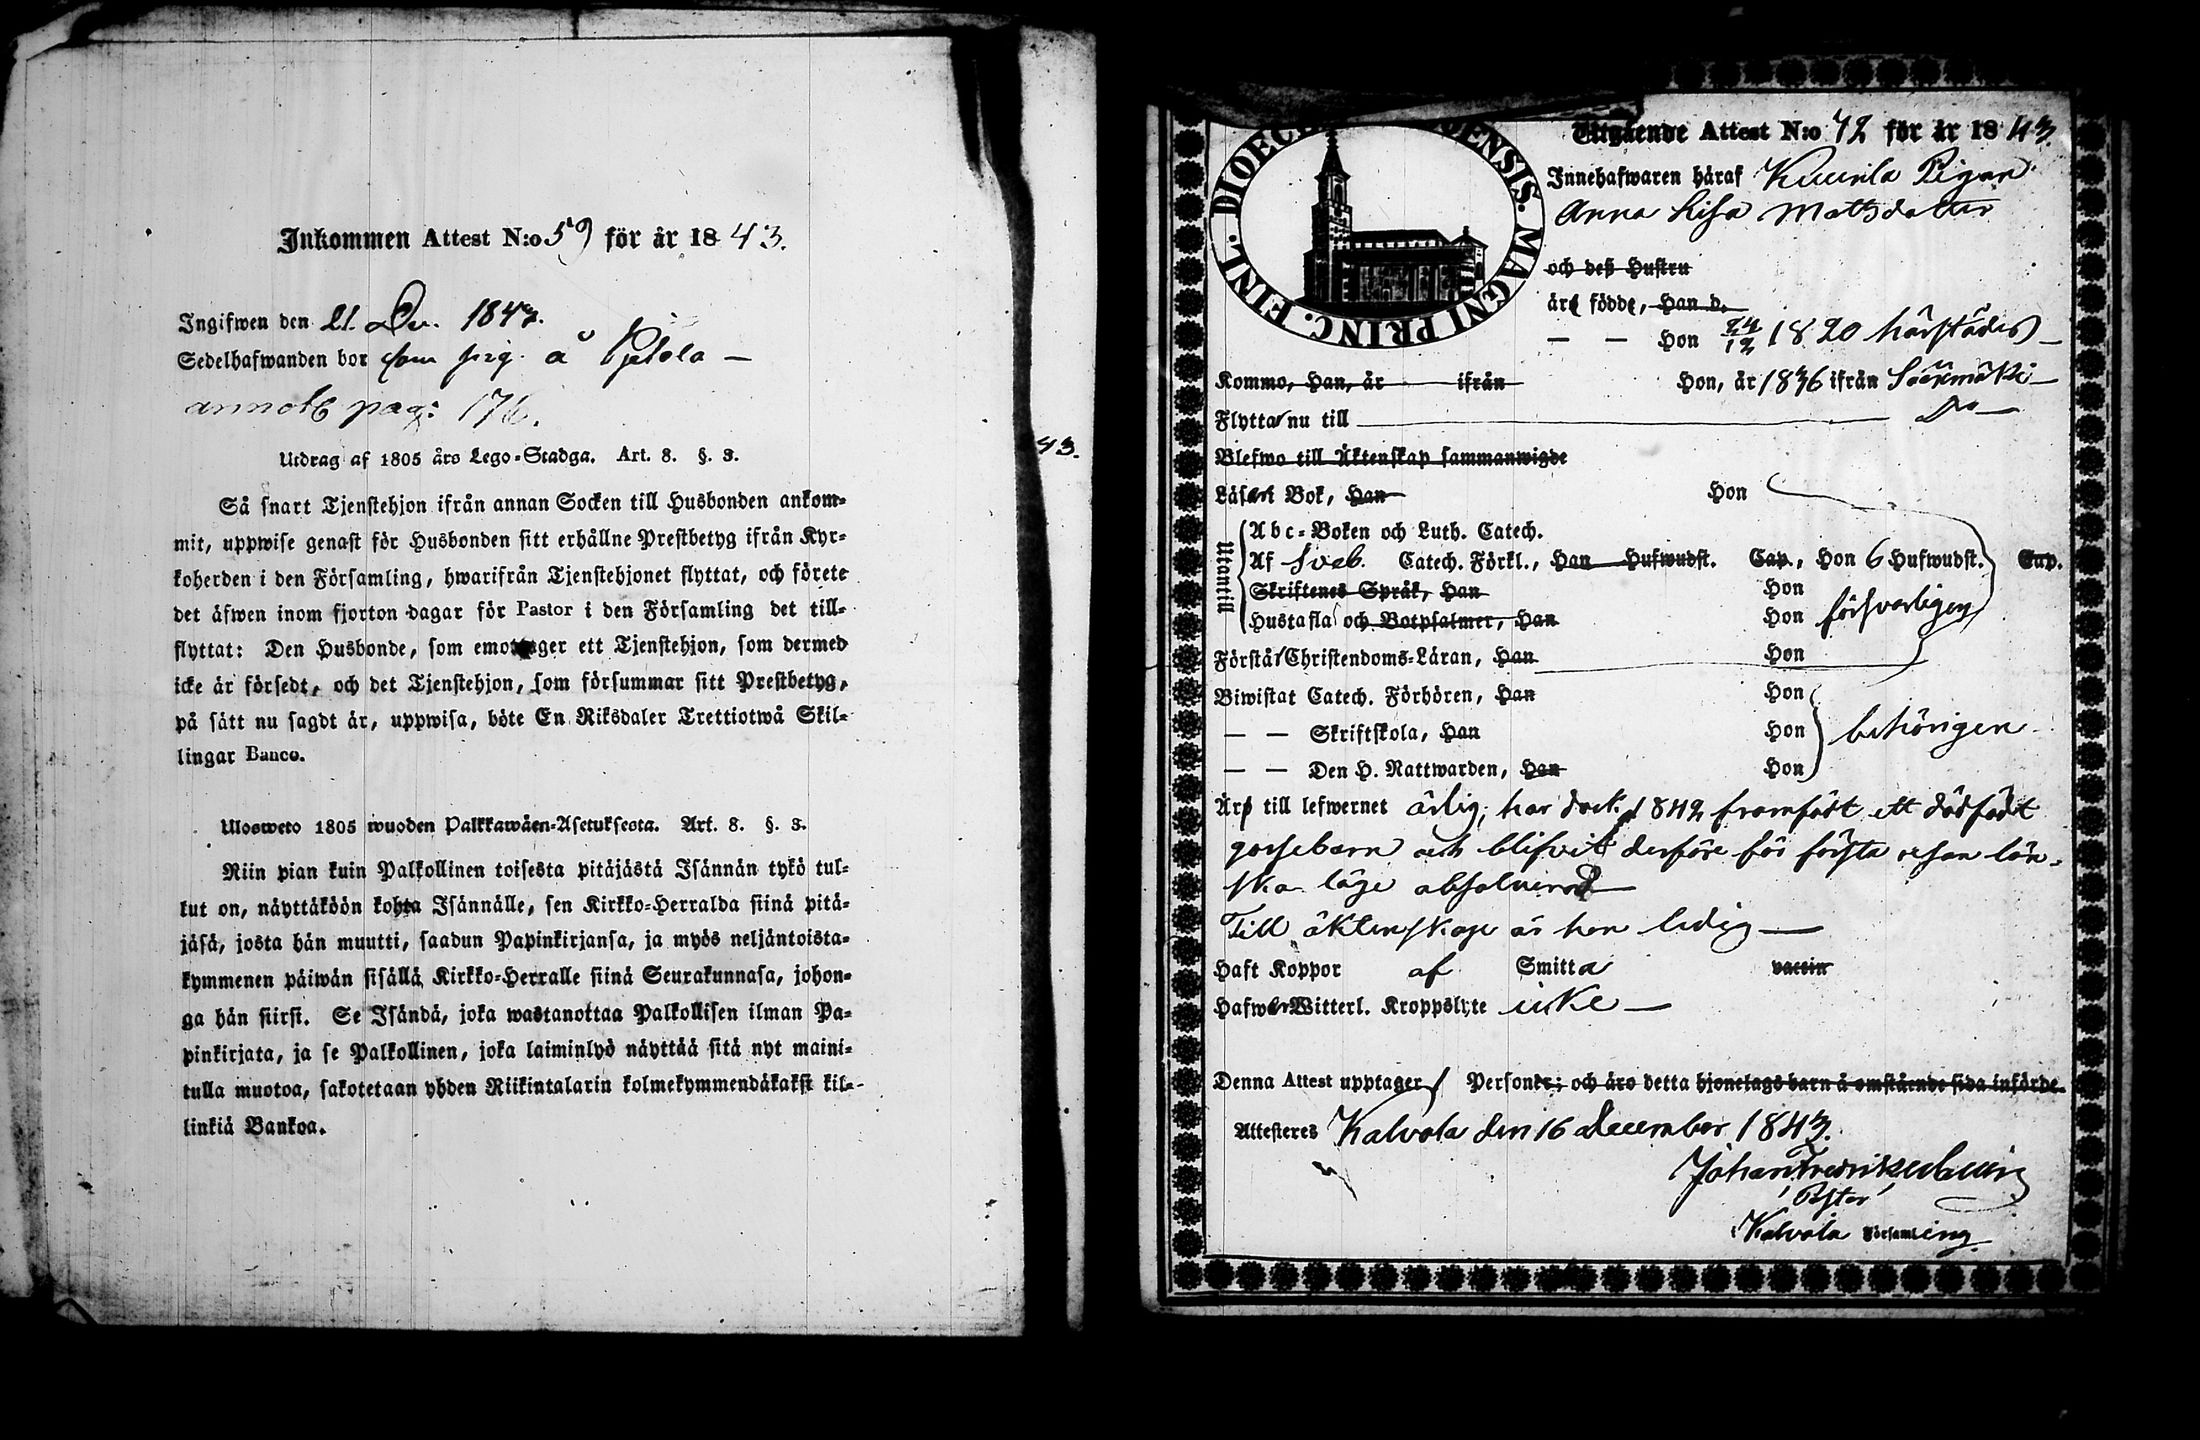 Inkommen Attest N:o 59 för år 1843.
Ingifwen den 21. Dec. 1843.
Sedelhafwanden bor som pig. å Pjetola —
annotb pag: 176.
Utdrag af 1805 års Lego-Stadga. Art. 8. §. 3.
Så snart Tjenstehjon ifrån annan Socken till Husbonden ankom-
mit, uppwise genast för Husbonden sitt erhållne Prestbetyg ifrån Kyr-
koherden i den Församling, hwarifrån Tjenstehjonet flyttat, och förete
det äfwen inom fjorton dagar för Pastor i den Församling det till-
flyttat: Den Husbonde, som emottager ett Tjenstehjon, som dermed
icke är försedt, och det Tjenstehjon, som försummar sitt Prestbetyg,
på sätt nu sagdt är, uppwisa, böte En Riksdaler Trettiotwå Skil-
lingar Banco.
Ulosweto 1805 wuoden Palkkawäen-Asetuksesta. Art. 8. §. 3.
Niin pian kuin Palkollinen toisesta pitäjästä Isännän tykö tul-
lut on, näyttäköön kohta Isännälle, sen Kirkko-Herralda siinä pitä-
jäsä, josta hän muutti, saadun Papinkirjansa, ja myös neljäntoista-
kymmenen päiwän sisällä Kirkko-Herralle siinä Seurakunnasa, johon-
ga hän siirsi. Se Isändä, joka wastanottaa Palkollisen ilman Pa-
pinkirjata, ja se Palkollinen, joka laiminlyö näyttää sitä nyt maini-
tulla muotoa, sakotetaan yhden Riikintalarin kolmekymmendäkaksi kil-
linkiä Bankoa.
43.
FINL. DIOEC ENSIS. MAGNI PRINC.
Utgående Attest N:o 72 för år 1843.
Innehafwaren häraf Kuurila Pigan
Anna Lisa Mattsdotter
och deß Hustru
äro födde, Han d.
— — Hon 24/12 1820 härstädes —
Kommo, Han, år ifrån Hon, år 1836 ifrån Sääxmäki —
Flytta nu till Do —
Blefwo till Äktenskap sammanwigde
Läser i Bok, Han Hon
Utantill
Abc-Boken och Luth. Catech.
Af Sveb. Catech. Förkl., Han Hufwudst. Cap., Hon 6 Hufwudst. Cap.
Skriftenes Språk, Han Hon
Hustafla och Botpsalmer, Han Hon försvarligen
Förstår Christendoms-Läran, Han Hon
Biwistat Catech. Förhören, Han Hon
— — Skriftskola, Han Hon behörigen
— — Den H. Nattwarden, Han Hon
Äro till lefwernet ärlig, har dock 1842 framfödt ett dödfödt
gossebarn och blifvit derföre för första resan lön-
ska läge absolverad —
Till äktenskap är hon ledig —
Haft Koppor af Smitta vaccin
Hafwer Witterl. Kroppslyte icke —
Denna Attest upptager 1 Personer; och äro detta hjonelags barn å omstående sida införde.
Attesteres Kalvola den 16 December 1843.
Johan Fredrik
Pastor
i Kalvola Församling